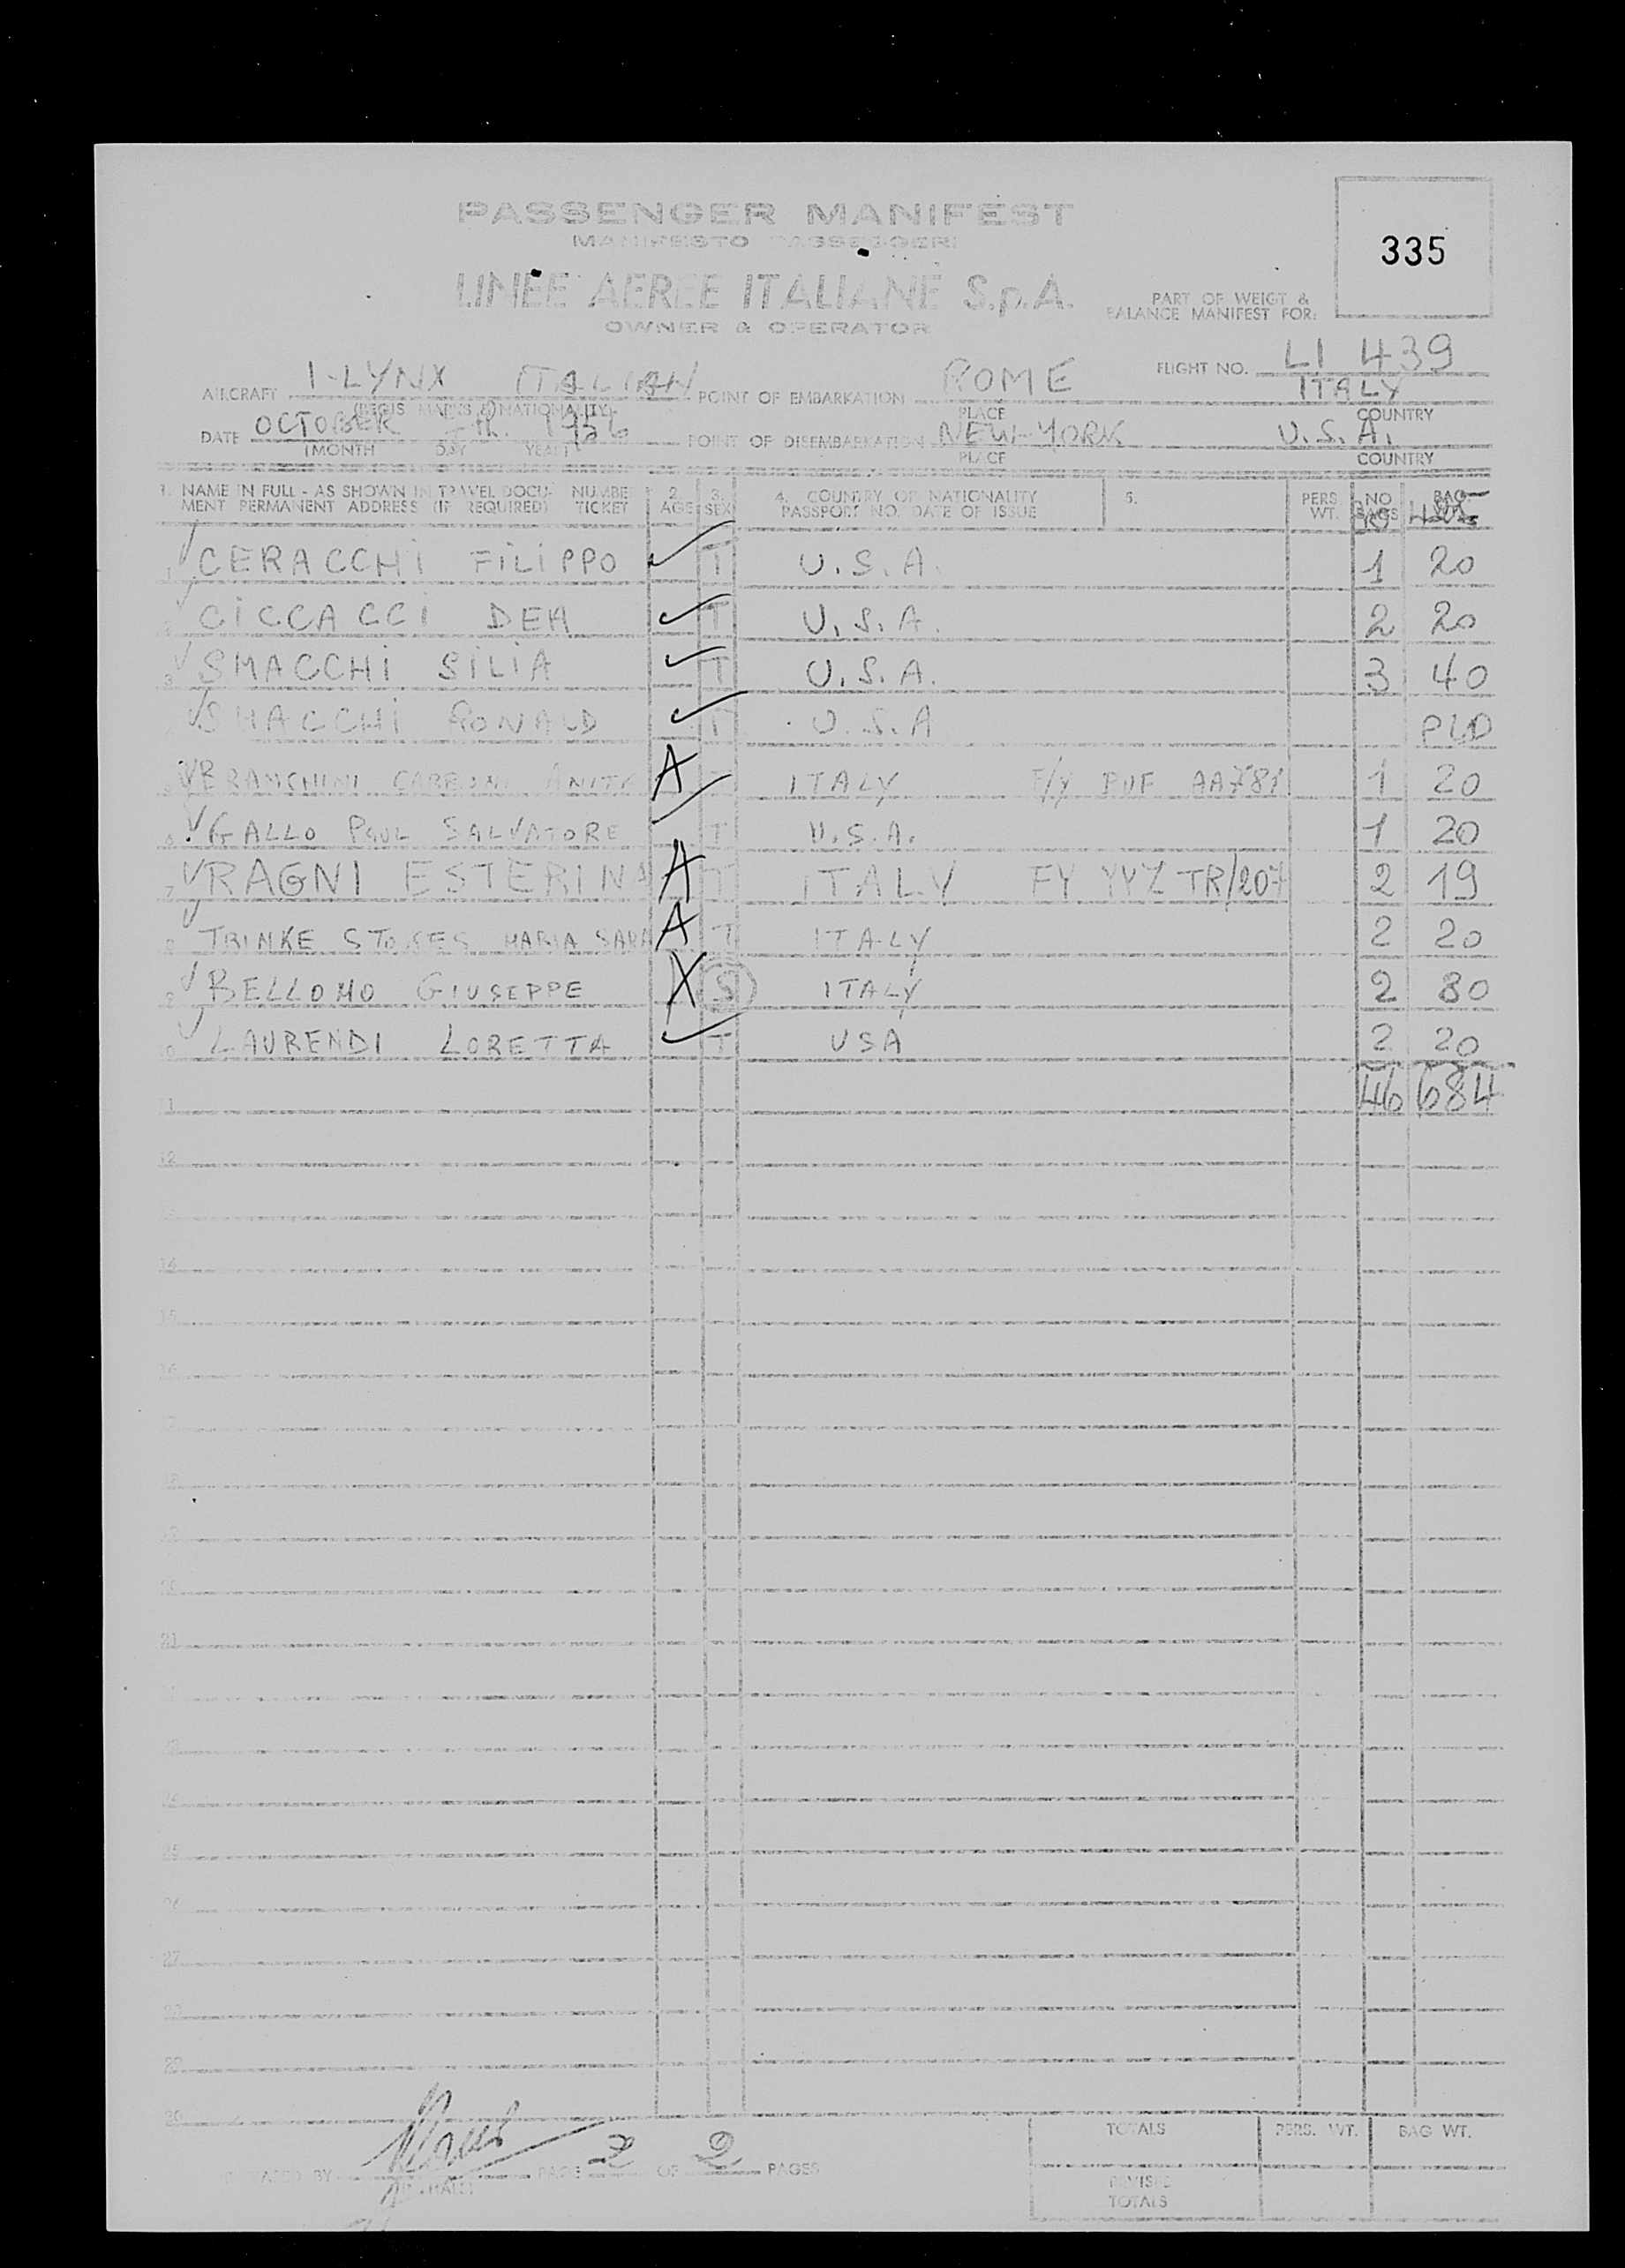 PASSENGER MANIFEST
MANIFESTO PASSEGGERI
335
LINEE AEREE ITALIANE S.p.A.
OWNER & OPERATOR
PART OF WEIGT & BALANCE MANIFEST FOR:
AIRCRAFT I-LYNX ITALIAN POINT OF EMBARKATION ROME FLIGHT NO. LI 439
ITALY
(REGIS MARKS & NATIONALITY) PLACE COUNTRY
DATE OCTOBER TH. 1956 POINT OF DISEMBARKATION NEW-YORK U.S.A.
(MONTH DAY YEAR) PLACE COUNTRY
1. NAME IN FULL - AS SHOWN IN TRAVEL DOCU- NUMBE 2. 3. 4. COUNTRY OF NATIONALITY 5. PERS NO BAG
MENT PERMANENT ADDRESS (IF REQUIRED) TICKET AGE SEX PASSPORT NO. DATE OF ISSUE WT. BAGS
1 CERACCHI FILIPPO T U.S.A. 1 20
2 CICCACCI DEA T U.S.A. 2 20
3 SMACCHI SILIA T U.S.A. 3 40
SMACCHI RONALD T U.S.A
5 CARBONI ANITA A T ITALY F/Y PUF AA781 1 20
6 GALLO PAUL SALVATORE T U.S.A. 1 20
7 RAGNI ESTERINA A T ITALY FY YYZ TR/207 2 19
8 TRINKE MARIA SARA A T ITALY 2 20
9 BELLOMO GIUSEPPE X S ITALY 2 80
10 LAURENDI LORETTA T USA 2 20
11 46 684
12
14
15
16
21
25
27
29
30
TOTALS PERS. WT. BAG WT.
PREPARED BY PAGE 2 OF 2 PAGES
REVISED
TOTALS